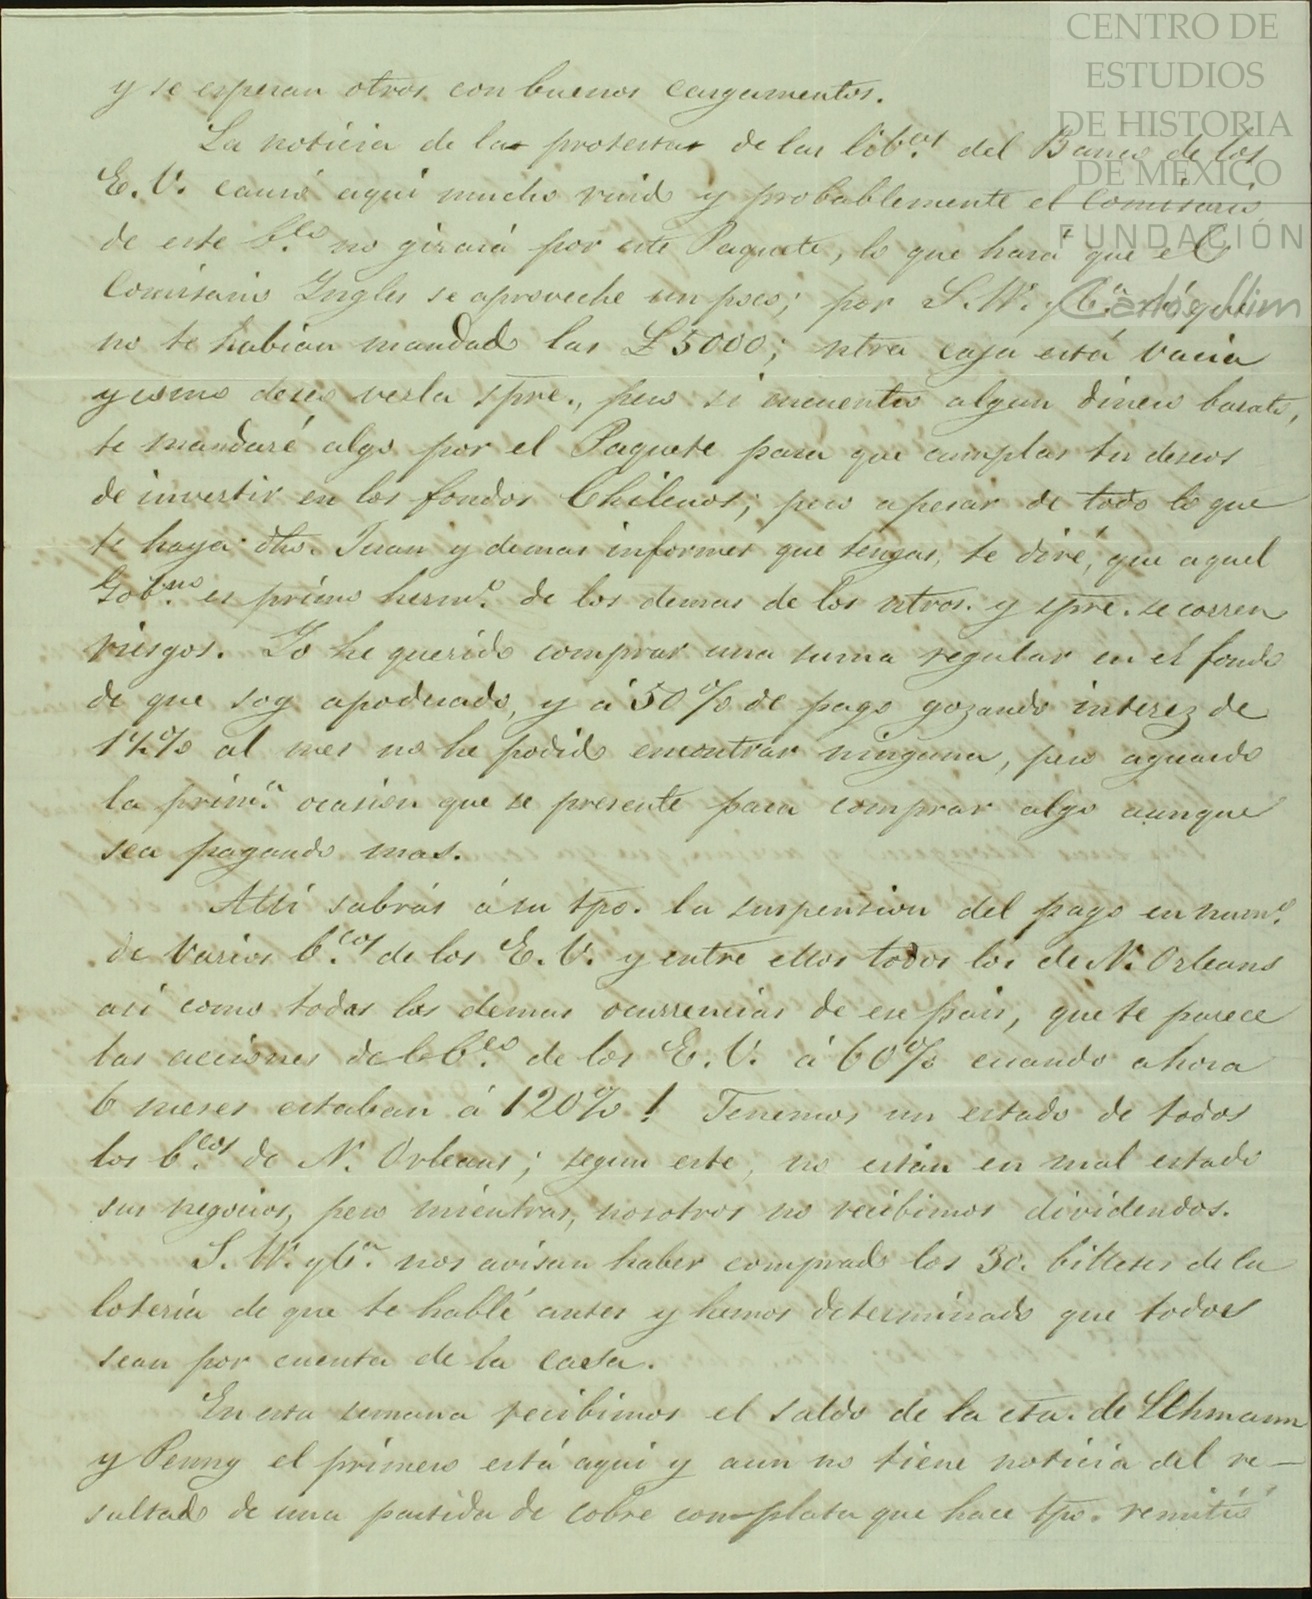 CENTRO DE
ESTUDIOS
DE HISTORIA
DE MÉXICO
FUNDACIÓN
Carlos Slim
y se esperan otros con buenos cargamentos.
La noticia de la protesta de las lib.cas del Banco de los
E. U. causó aqui mucho ruido y probablemente el Comisario
de este b.co no girará por este Paquete, lo que hará que el
Comisario Ingles se aproveche un poco; por S. W. y C.a que
no te habian mandado las £5000; ntra caja está vacia
y como deseo verla spre., pero si encuentro algun dinero barato,
te mandaré algo por el Paquete para que cumplas tus deseos
de invertir en los fondos Chilenos; pero apesar de todo lo que
te haya dho. Juan y demas informes que tengas, te diré, que aquel
Gob.no es primo herm.o de los demas de los ntros. y spre. se corren
riesgos. Yo he querido comprar una suma regular en el fondo
de que soy apoderado, y á 50% de pago gozando interez de
1½% al mes no he podido encontrar ninguna, pero aguardo
la prim.a ocasion que se presente para comprar algo aunque
sea pagando mas.
Alli sabrás á su tpo. la suspension del pago en num.o
de varios b.cos de los E. U. y entre ellos todos los de N. Orleans
asi como todas las demas ocurrencias de ese pais, que te parece
las acciones del b.co de los E. U. á 60% cuando ahora
6 meses estaban á 120%! Tenemos un estado de todos
los b.cos de N. Orleans; segun este, no están en mal estado
sus negocios, pero mientras, nosotros no recibimos dividendos.
S. W. y C.a nos avisan haber comprado los 30. billetes de la
lotería de que te hablé antes y hemos determinado que todos
sean por cuenta de la casa.
En esta semana recibimos el saldo de la cta. de Lehmann
y Penny el primero está aqui y aun no tiene noticia del re-
sultado de una partida de cobre con plata que hace tpo. remitió